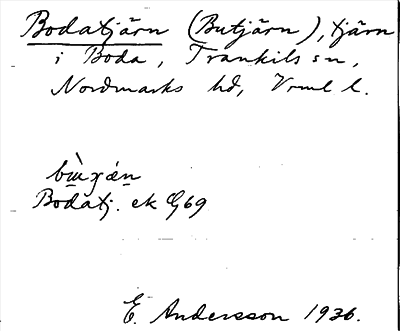 Bodatjärn (Butjärn), tjärn
i Boda, Trankils sn,
Nordmarks hd, Vrml l.
Bodatj. ek G69
E. Andersson 1936.